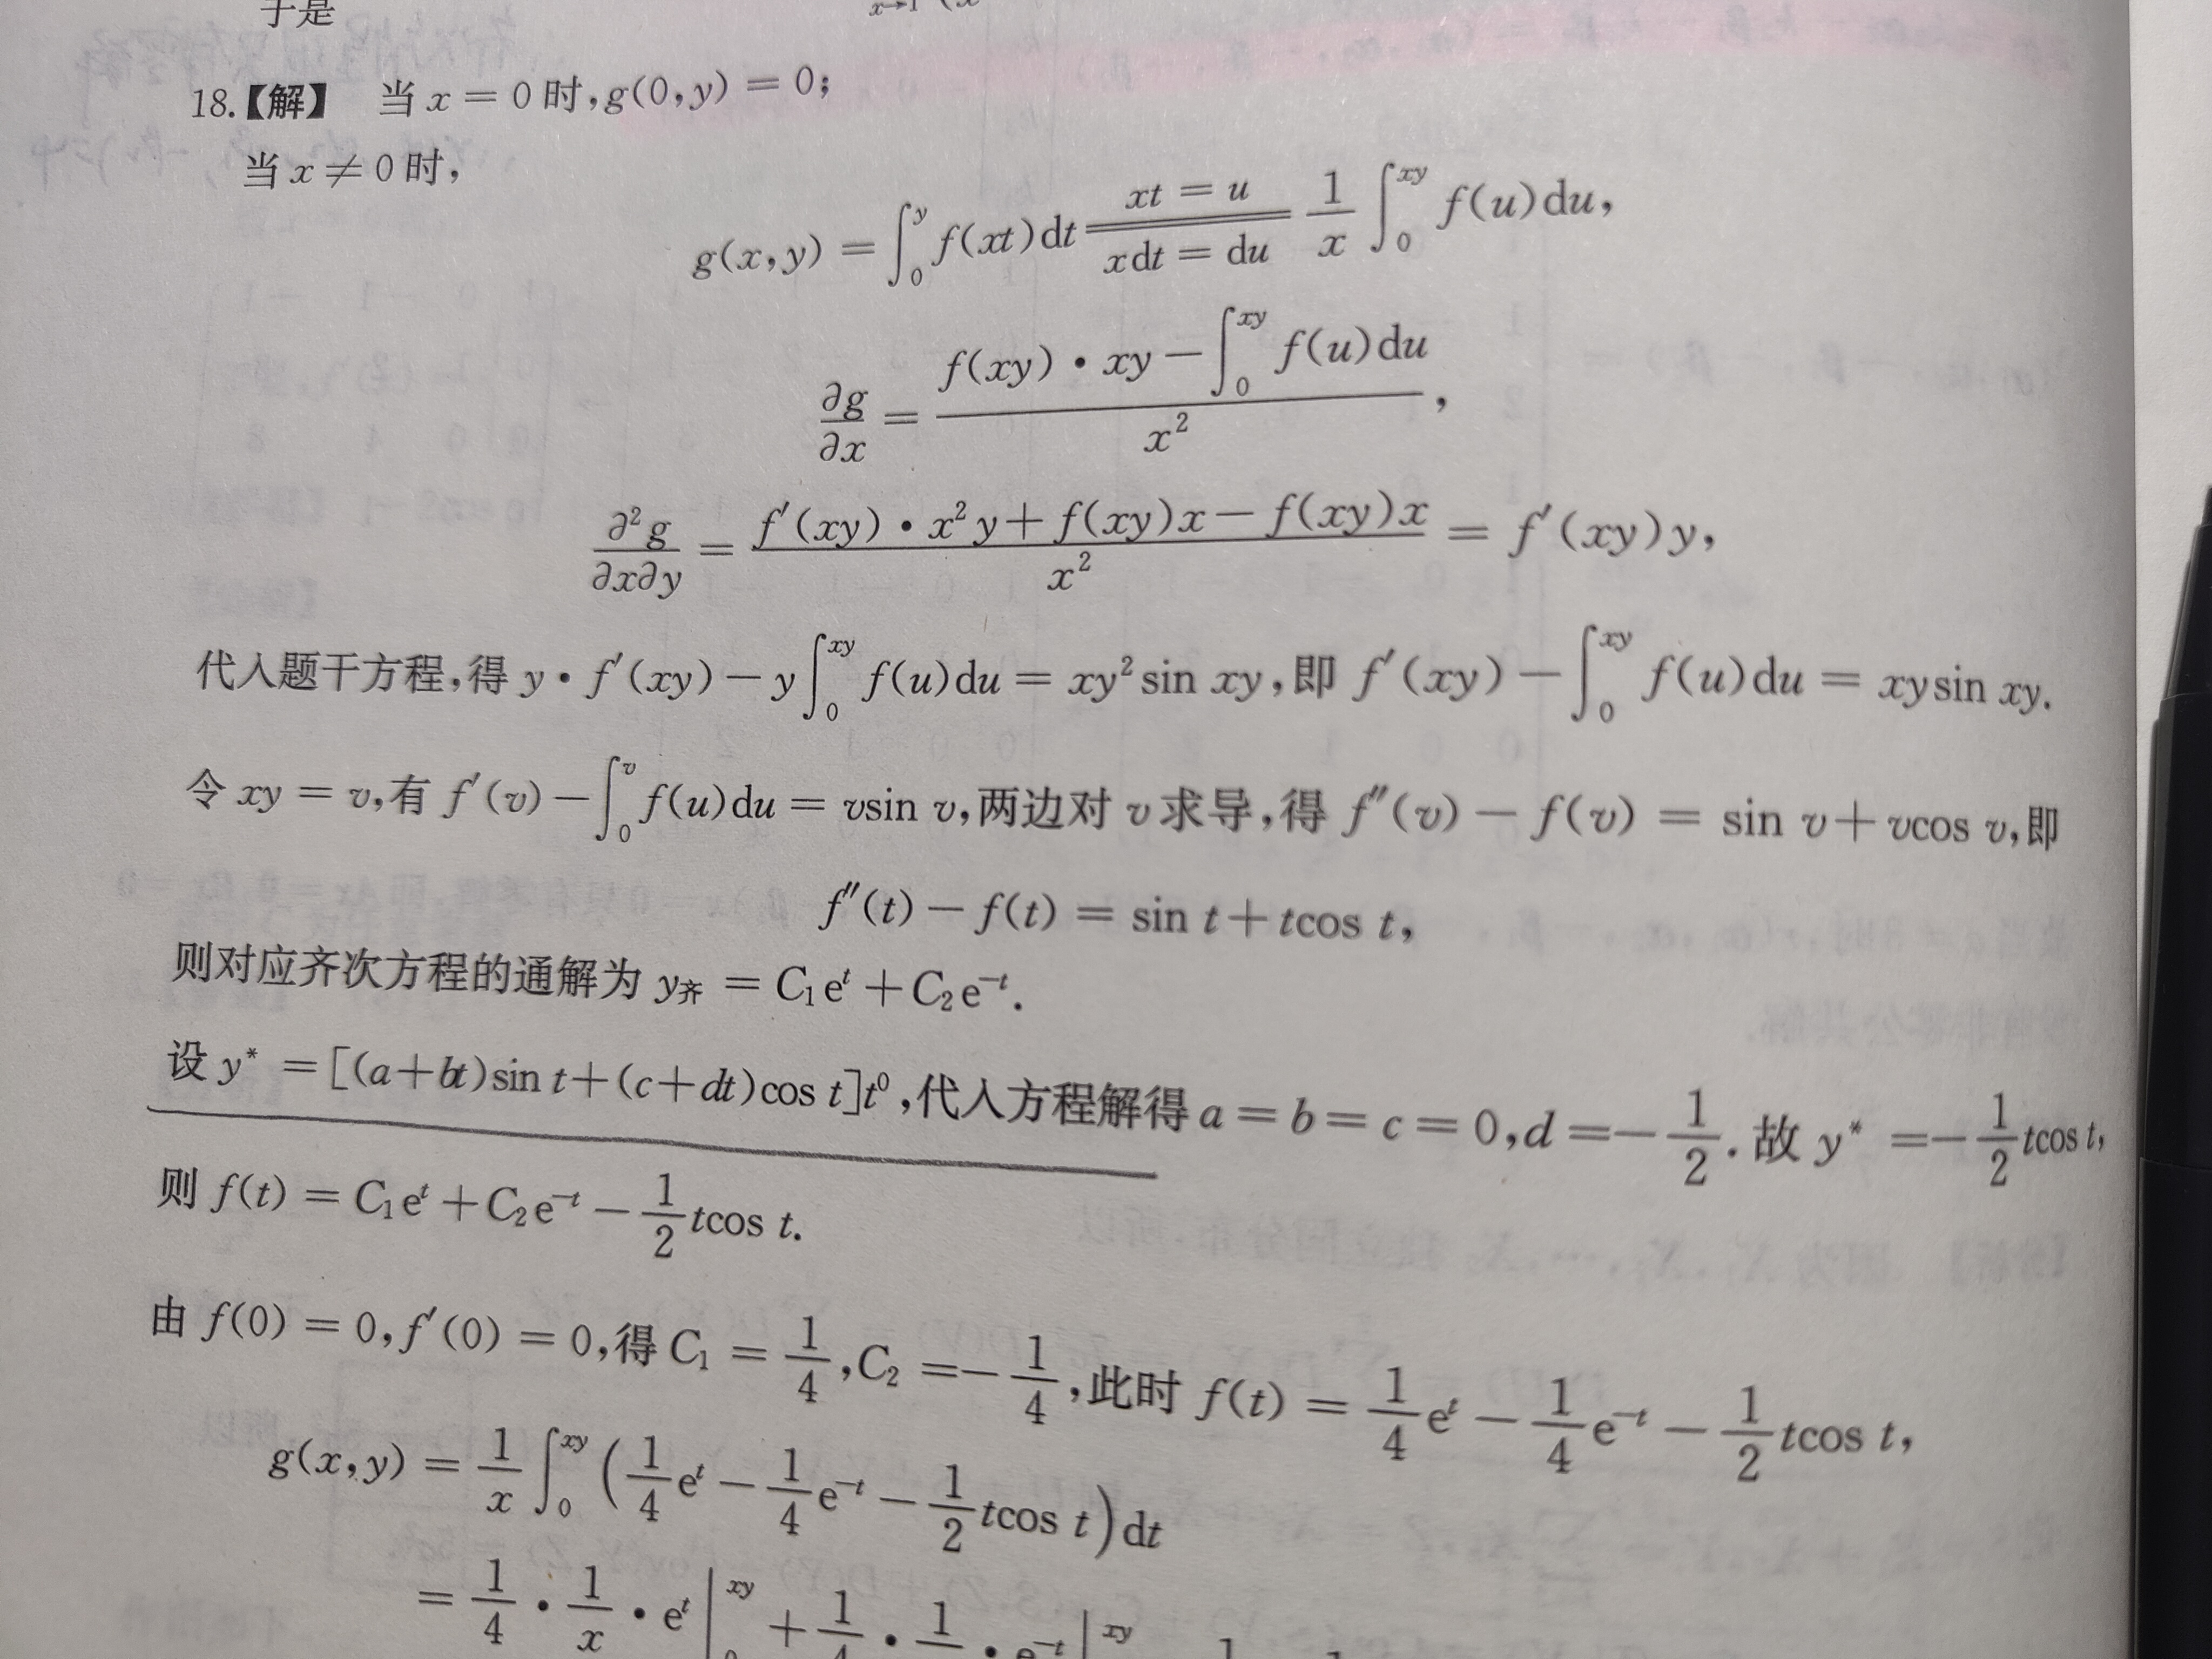 于是
18.【解】 当 x = 0 时,g(0,y) = 0;
当 x ≠ 0 时,
g(x,y) = ∫₀^y f(xt)dt \xlongequal[xdt = du]{xt = u} \frac{1}{x} ∫₀^{xy} f(u)du,
\frac{∂g}{∂x} = \frac{f(xy)·xy − ∫₀^{xy} f(u)du}{x²},
\frac{∂²g}{∂x∂y} = \frac{f′(xy)·x²y + f(xy)x − f(xy)x}{x²} = f′(xy)y,
代入题干方程,得 y·f′(xy) − y∫₀^{xy} f(u)du = xy² sin xy,即 f′(xy) − ∫₀^{xy} f(u)du = xy sin xy.
令 xy = v,有 f′(v) − ∫₀^v f(u)du = v sin v,两边对 v 求导,得 f″(v) − f(v) = sin v + v cos v,即
f″(t) − f(t) = sin t + t cos t,
则对应齐次方程的通解为 y_齐 = C₁e^t + C₂e^{−t}.
设 y* = [(a+bt)sin t + (c+dt)cos t]t⁰,代入方程解得 a = b = c = 0,d = −\frac{1}{2}.故 y* = −\frac{1}{2}t cos t,
则 f(t) = C₁e^t + C₂e^{−t} − \frac{1}{2}t cos t.
由 f(0) = 0,f′(0) = 0,得 C₁ = \frac{1}{4},C₂ = −\frac{1}{4},此时 f(t) = \frac{1}{4}e^t − \frac{1}{4}e^{−t} − \frac{1}{2}t cos t,
g(x,y) = \frac{1}{x} ∫₀^{xy} (\frac{1}{4}e^t − \frac{1}{4}e^{−t} − \frac{1}{2}t cos t)dt
= \frac{1}{4}·\frac{1}{x}·e^t |₀^{xy} + \frac{1}{4}·1·e^{−t} |^{xy}